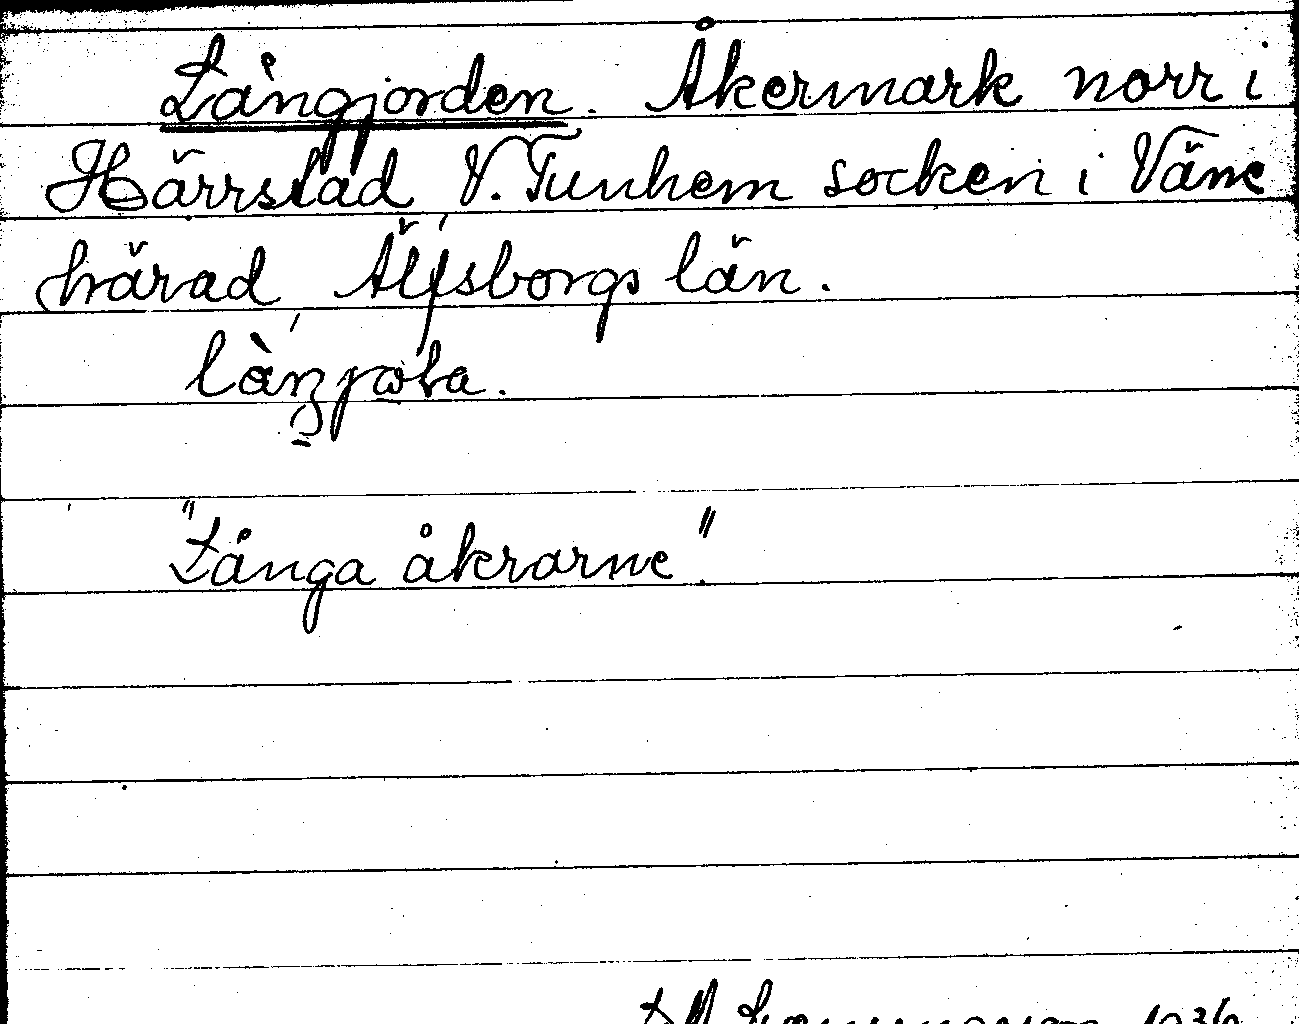 Långjorden. Åkermark norr i
Härrstad V. Tunhem socken i Väne
härad Älfsborgs län.
"Långa åkrarne".
1936